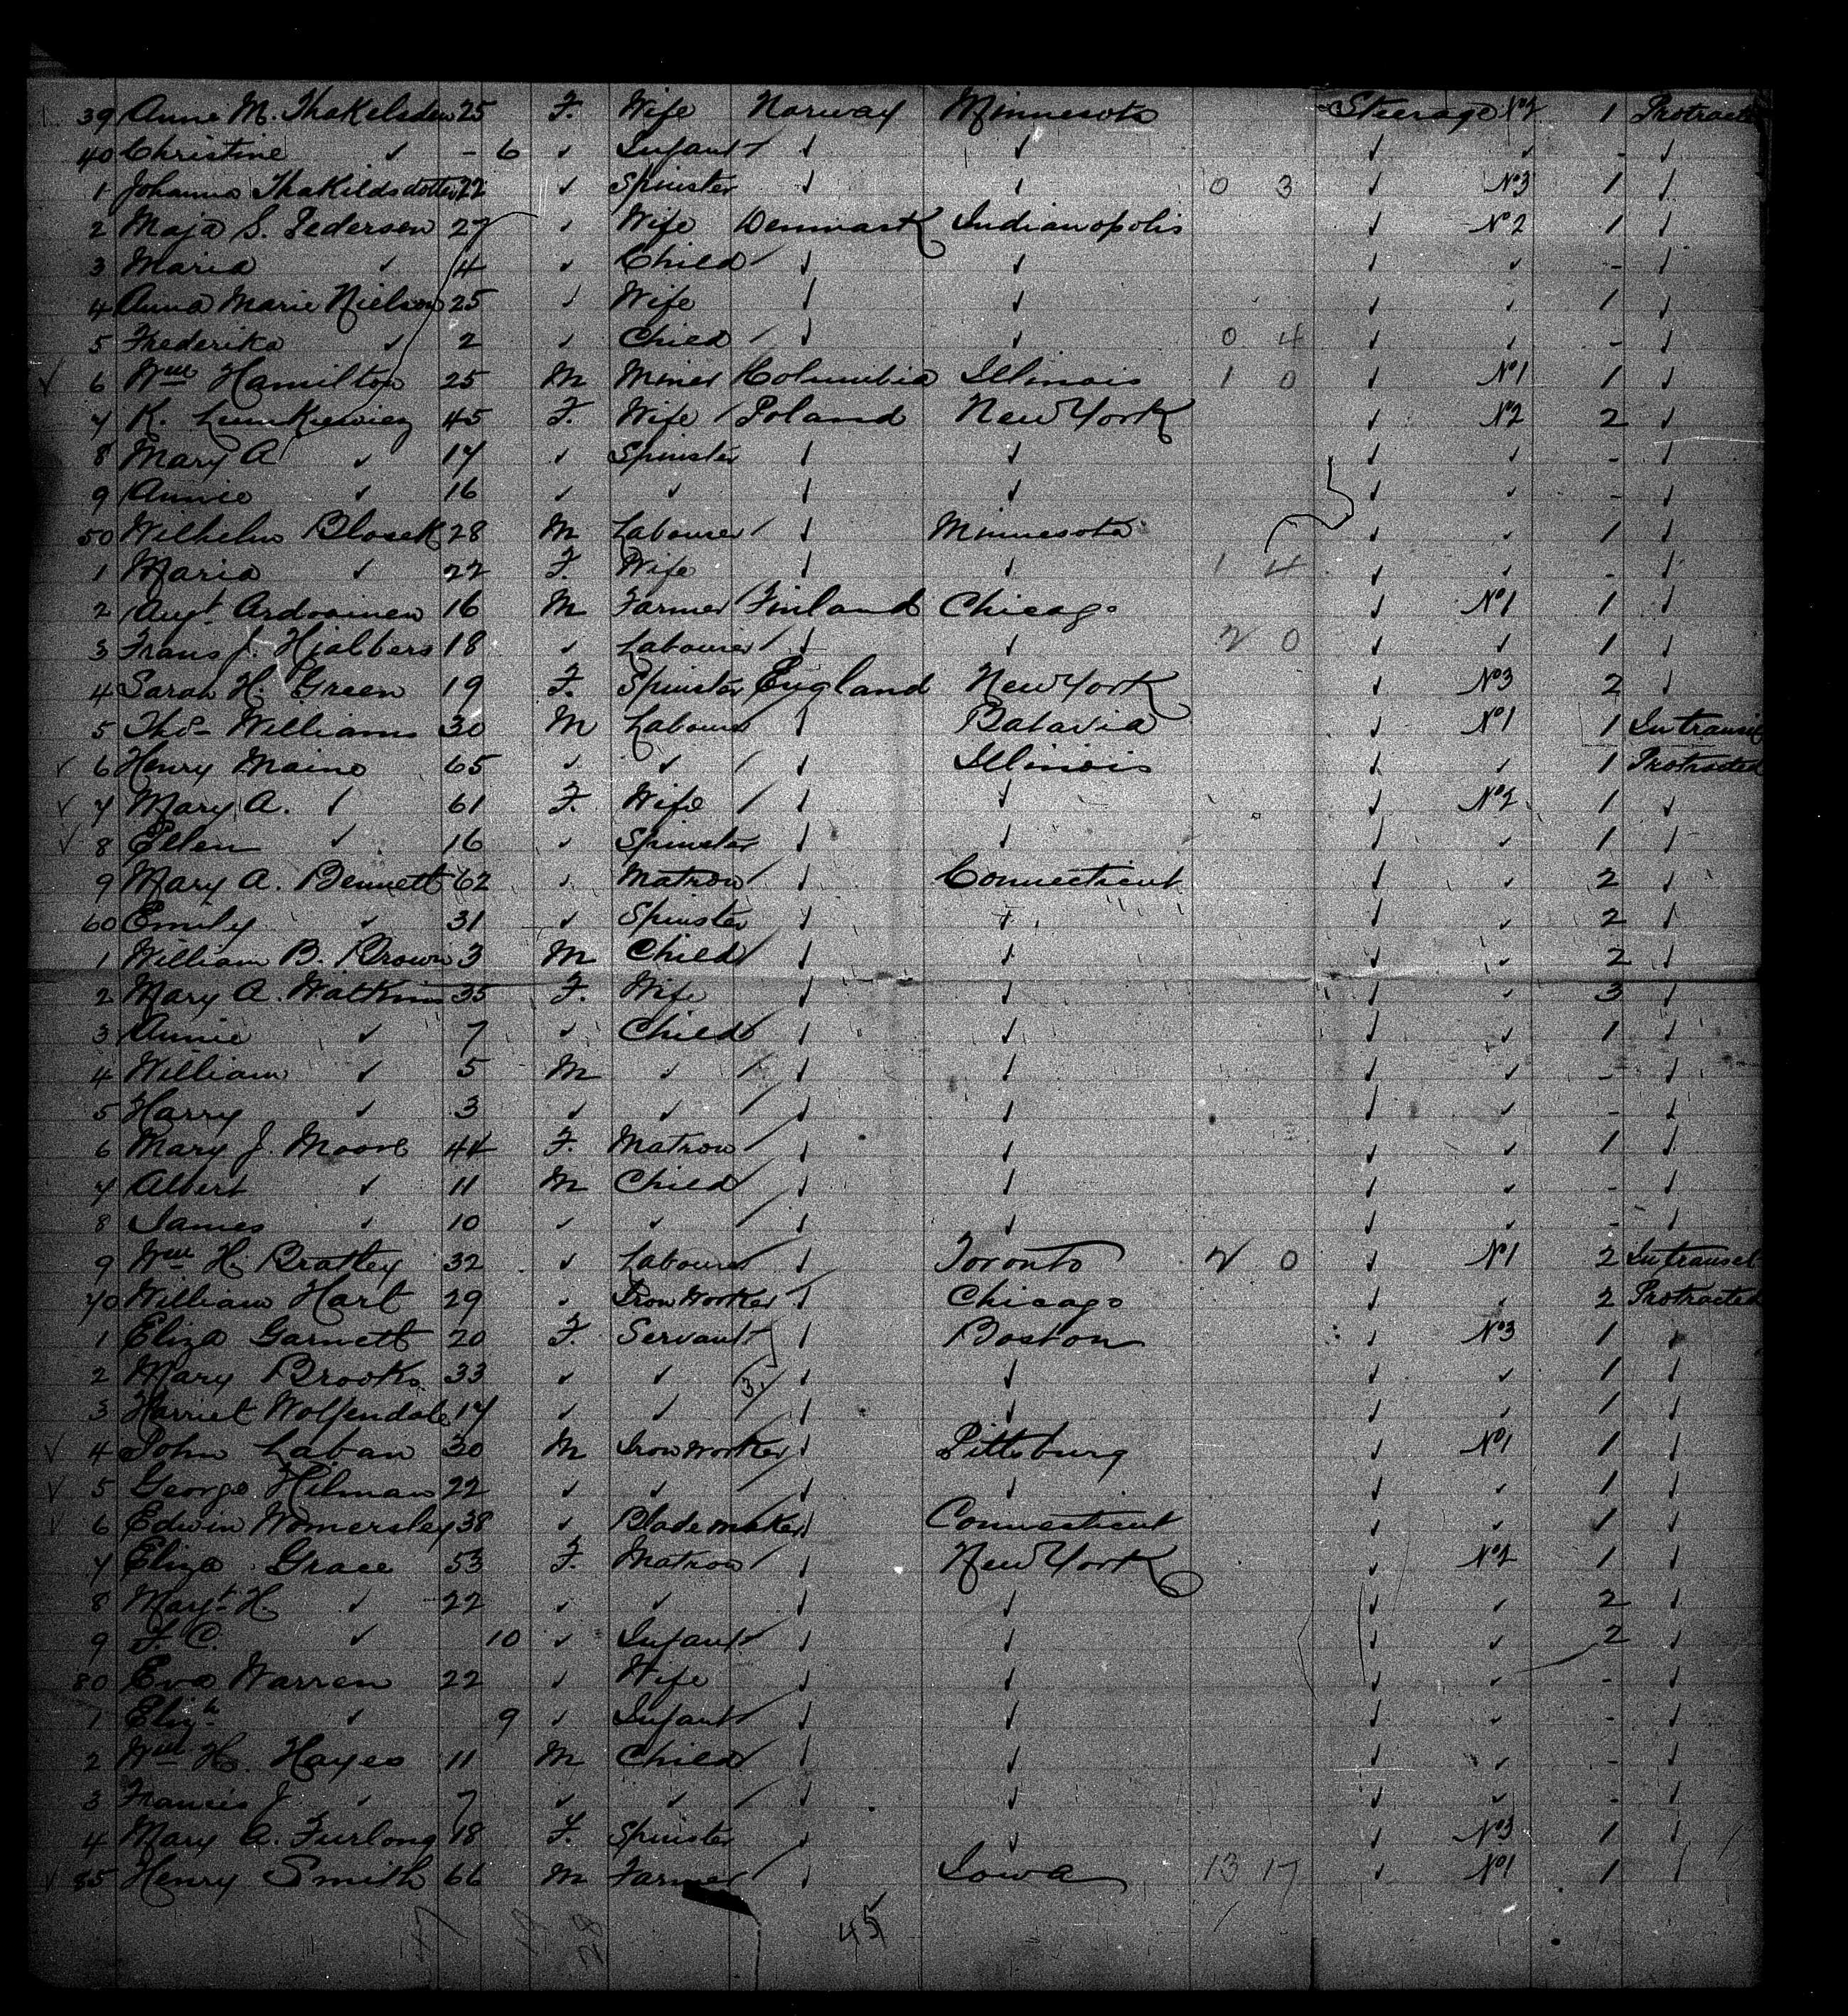 39 Anne M. Thakelsden 25 F. Wife Norway Minnesota Steerage No2 1 Protracted
40 Christine ✓ - 6 ✓ Infant ✓ ✓ ✓ ✓ - ✓
1 Johanna Thakildsdotter 22 ✓ Spinster ✓ ✓ 0 3 ✓ No3 1 ✓
2 Maja S. Pedersen 27 ✓ Wife Denmark Indianopolis ✓ No2 1 ✓
3 Maria ✓ 4 ✓ Child ✓ ✓ ✓ ✓ - ✓
4 Anna Marie Nielson 25 ✓ Wife ✓ ✓ ✓ ✓ 1 ✓
5 Frederika ✓ 2 ✓ Child ✓ ✓ 0 4 ✓ ✓ - ✓
✓ 6 Wm Hamilton 25 M Miner Columbia Illinois 1 0 ✓ No1 1 ✓
7 K. 45 F. Wife Poland New York ✓ No2 2 ✓
8 Mary A ✓ 17 ✓ Spinster ✓ ✓ ✓ ✓ - ✓
9 Annie ✓ 16 ✓ ✓ ✓ ✓ ✓ ✓ - ✓
50 Wilhelm Blosek 28 M Labourer ✓ Minnesota ✓ ✓ 1 ✓
1 Maria ✓ 22 F. Wife ✓ ✓ 1 4 ✓ ✓ - ✓
2 Augt Ardoainen 16 M Farmer Finland Chicago ✓ No1 1 ✓
3 Frans J. Hjalbers 18 ✓ Labourer ✓ ✓ 2 0 ✓ ✓ 1 ✓
4 Sarah H. Green 19 F. Spinster England New York ✓ No3 2 ✓
5 Thos Williams 30 M Labourer ✓ Batavia ✓ No1 1 In transit
✓ 6 Henry Maine 65 ✓ ✓ ✓ Illinois ✓ ✓ 1 Protracted
✓ 7 Mary A. ✓ 61 F. Wife ✓ ✓ ✓ No2 1 ✓
✓ 8 Ellen ✓ 16 ✓ Spinster ✓ ✓ ✓ ✓ 1 ✓
9 Mary A. Bennett 62 ✓ Matron ✓ Connecticut ✓ ✓ 2 ✓
60 Emily ✓ 31 ✓ Spinster ✓ ✓ ✓ ✓ 2 ✓
1 William B. Brown 3 M Child ✓ ✓ ✓ ✓ 2 ✓
2 Mary A. Watkins 35 F. Wife ✓ ✓ ✓ ✓ 3 ✓
3 Annie ✓ 7 ✓ Child ✓ ✓ ✓ ✓ 1 ✓
4 William ✓ 5 M ✓ ✓ ✓ ✓ ✓ - ✓
5 Harry ✓ 3 ✓ ✓ ✓ ✓ ✓ ✓ - ✓
6 Mary J. Moore 44 F. Matron ✓ ✓ ✓ ✓ 1 ✓
7 Albert ✓ 11 M Child ✓ ✓ ✓ ✓ - ✓
8 James ✓ 10 ✓ ✓ ✓ ✓ ✓ ✓ - ✓
9 Wm H. Bratley 32 ✓ Labourer ✓ Toronto 2 0 ✓ No1 2 In transit
70 William Hart 29 ✓ Iron Worker ✓ Chicago ✓ ✓ 2 Protracted
1 Eliza Garnett 20 F. Servant ✓ Boston ✓ No3 1 ✓
2 Mary Brooks 33 ✓ ✓ 3 ✓ ✓ ✓ ✓ 1 ✓
3 Harriet Wolfendale 17 ✓ ✓ ✓ ✓ ✓ ✓ 1 ✓
✓ 4 John Laban 30 M Iron Worker ✓ Pittsburg ✓ No1 1 ✓
✓ 5 George Hilman 22 ✓ ✓ ✓ ✓ ✓ ✓ 1 ✓
✓ 6 Edwin Womersley 38 ✓ Blade maker ✓ Connecticut ✓ ✓ 1 ✓
7 Eliza Grace 53 F. Matron ✓ New York ✓ No2 1 ✓
8 Margt H. ✓ 22 ✓ ✓ ✓ ✓ ✓ ✓ 2 ✓
9 F. C. ✓ 10 ✓ Infant ✓ ✓ ✓ ✓ 2 ✓
80 Eva Warren 22 ✓ Wife ✓ ✓ ✓ ✓ - ✓
1 Elizh ✓ 9 ✓ Infant ✓ ✓ ✓ ✓ - ✓
2 Wm H. Hayes 11 M Child ✓ ✓ ✓ ✓ - ✓
3 Francis J ✓ 7 ✓ ✓ ✓ ✓ ✓ ✓ - ✓
4 Mary A. Furlong 18 F. Spinster ✓ ✓ ✓ No3 1 ✓
✓ 85 Henry Smith 66 M Farmer ✓ Iowa 13 17 ✓ No1 1 ✓
45